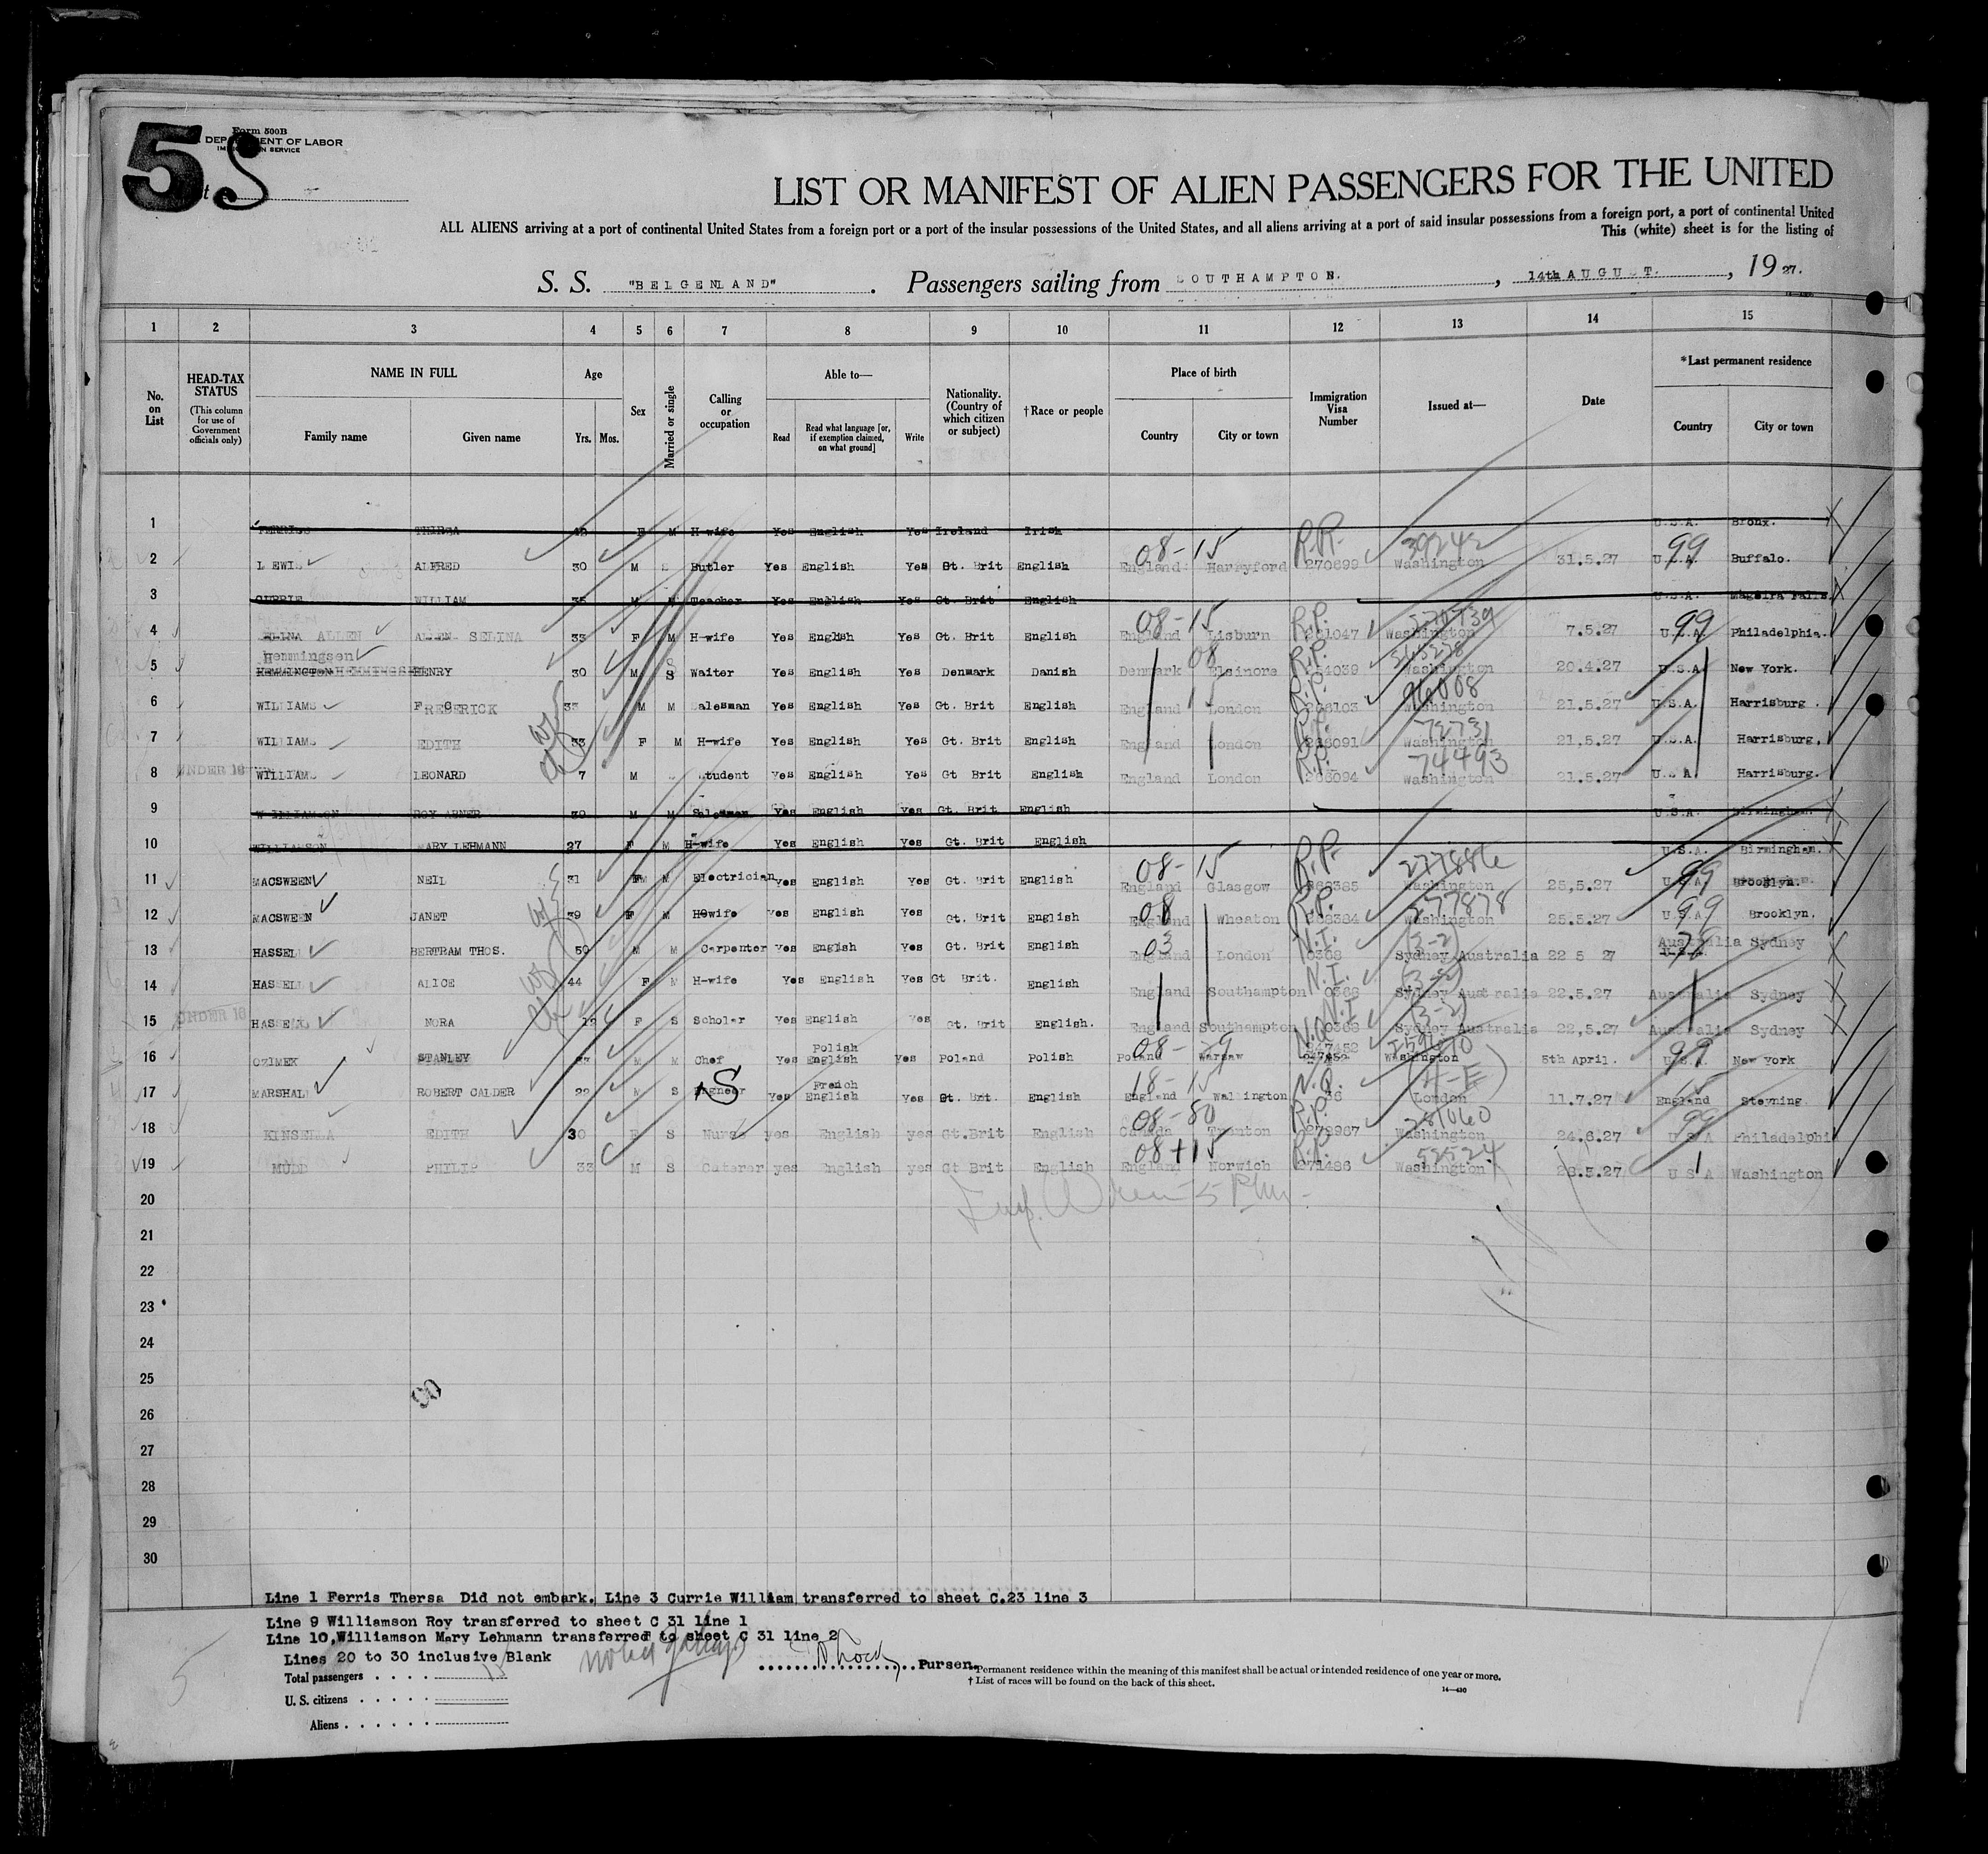 5 S
Form 500B
DEPARTMENT OF LABOR
IMMIGRATION SERVICE
LIST OR MANIFEST OF ALIEN PASSENGERS FOR THE UNITED
ALL ALIENS arriving at a port of continental United States from a foreign port or a port of the insular possessions of the United States, and all aliens arriving at a port of said insular possessions from a foreign port, a port of continental United
This (white) sheet is for the listing of
S. S. "BELGENLAND" . Passengers sailing from SOUTHAMPTON. , 14th AUGUST. , 19 27.
1 2 3 4 5 6 7 8 9 10 11 12 13 14 15
No. on List
HEAD-TAX STATUS
(This column for use of Government officials only)
NAME IN FULL
Family name Given name
Age
Yrs. Mos.
Sex
Married or single
Calling or occupation
Able to—
Read Read what language [or, if exemption claimed, on what ground] Write
Nationality. (Country of which citizen or subject)
†Race or people
Place of birth
Country City or town
Immigration Visa Number
Issued at—
Date
*Last permanent residence
Country City or town
1 FERRIS THIRSA 42 F M H-wife Yes English Yes Ireland Irish U.S.A. Bronx.
08-15 R.P. 39242 99
2 LEWIS ALFRED 30 M Butler Yes English Yes Gt. Brit English England 270699 Washington 31.5.27 U.S.A. Buffalo.
3 CURRIE WILLIAM 35 M M Teacher Yes English Yes Gt. Brit English U.S.A. Magaira Falls.
08-15 R.P. 99
4 SELINA ALLEN ALLEN SELINA 33 F M H-wife Yes English Yes Gt. Brit English England Lisburn Washington 7.5.27 U.S.A. Philadelphia.
Hemmingsen 08 R.P.
5 HEMMINGTON HENRY 30 M S Waiter Yes English Yes Denmark Danish Denmark Elsinore Washington 20.4.27 U.S.A. New York.
15 R.P. 96008
6 WILLIAMS FREDERICK 33 M M Salesman Yes English Yes Gt. Brit English England London Washington 21.5.27 U.S.A. Harrisburg.
R.P. 72731
7 WILLIAMS EDITH 33 F M H-wife Yes English Yes Gt. Brit English England London Washington 21.5.27 U.S.A. Harrisburg.
R.P. 74493
8 UNDER 16 WILLIAMS LEONARD 7 M Student Yes English Yes Gt Brit English England London Washington 21.5.27 U.S.A. Harrisburg.
9 WILLIAMSON ROY ABNER 30 M M Salesman Yes English Yes Gt. Brit English U.S.A. Birmingham.
10 WILLIAMSON MARY LEHMANN 27 F M H-wife Yes English Yes Gt. Brit English U.S.A. Birmingham.
08-15 R.P. 277886 99
11 MACSWEEN NEIL 31 M M Electrician Yes English Yes Gt. Brit English England Glasgow Washington 25.5.27 U.S.A. Brooklyn.
08 R.P. 277878 99
12 MACSWEEN JANET 39 F M H-wife Yes English Yes Gt. Brit English England Wheaton Washington 25.5.27 U.S.A. Brooklyn.
03 N.I. (3-2) Australia Sydney
13 HASSELL BERTRAM THOS. 50 M M Carpenter Yes English Yes Gt. Brit English England London 0368 Sydney Australia 22 5 27
N.I. (3-2)
14 HASSELL ALICE 44 F M H-wife Yes English Yes Gt Brit. English England Southampton 0368 Sydney Australia 22.5.27 Australia Sydney
N.I. (3-2)
15 UNDER 16 HASSELL NORA 12 F S Scholar Yes English Yes Gt. Brit English. England Southampton 0368 Sydney Australia 22.5.27 Australia Sydney
Polish 08-29 247452 99
16 OZIMEK STANLEY 33 M M Chef Yes English Yes Poland Polish Poland Warsaw 247452 Washington 5th April. U.S. New York
S French 18-15 N.Q. (4-E) 15
17 MARSHALL ROBERT CALDER 22 M S Engneer Yes English Yes Gt. Brit. English England Wallington London 11.7.27 England Steyning
08-80 R.P. 281060 99
18 KINSELLA EDITH 30 F S Nurse yes English yes Gt.Brit English Canada Trenton 272967 Washington 24.6.27 U S A Philadelphi
08+15 R.P. 52524
19 MUDD PHILIP 33 M S Caterer yes English yes Gt Brit English England Norwich 271486 Washington 28.5.27 U S A Washington
20
21
22
23
24
25
26
27
28
29
30
Line 1 Ferris Thersa Did not embark. Line 3 Currie William transferred to sheet C.23 line 3
Line 9 Williamson Roy transferred to sheet C 31 line 1
Line 10,Williamson Mary Lehmann transferred to sheet C 31 line 2
Lines 20 to 30 inclusive Blank
Purser.
Total passengers
U. S. citizens
Aliens
*Permanent residence within the meaning of this manifest shall be actual or intended residence of one year or more.
† List of races will be found on the back of this sheet.
14—430
5